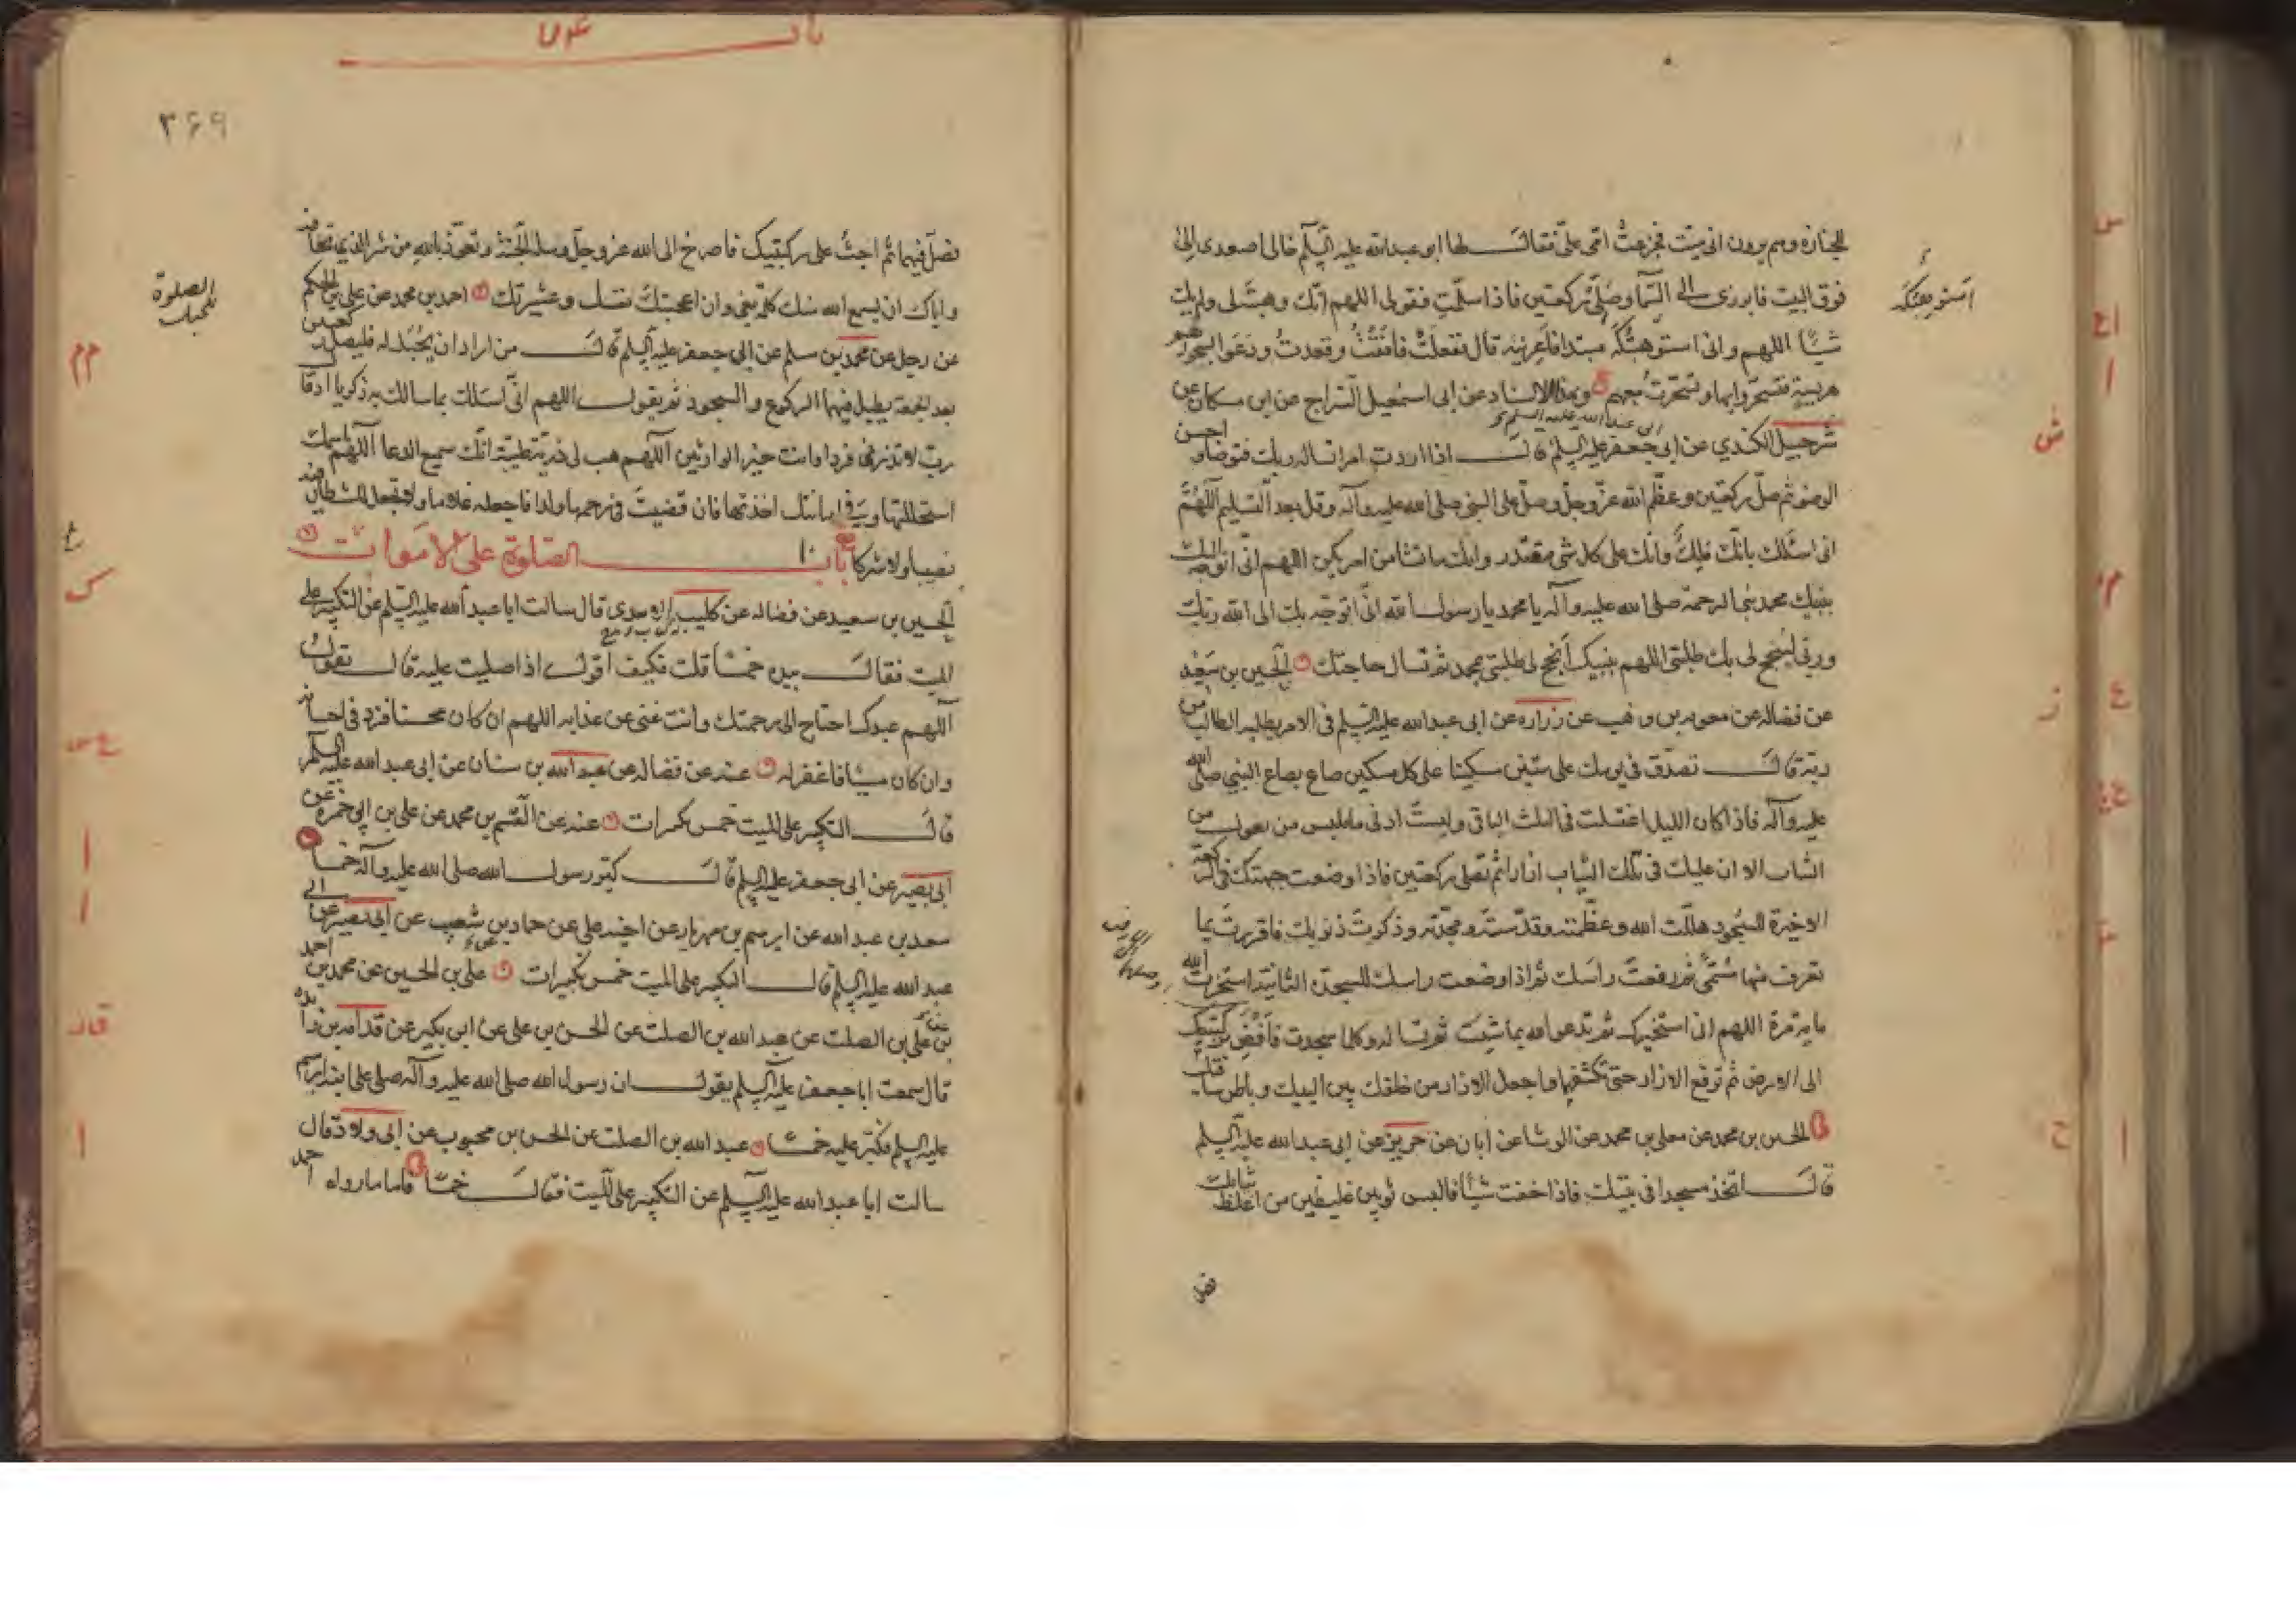 للجنازه وهم يرون انى ميت فجزعت امى على فقال لها ابو عبدالله عليه السلم خالى اصعدى الى
فوق البيت فابرزى الى السما وصلى ركعتين فاذا سلمت فقولى اللهم انك وهبته لى ولم يك
شيئا اللهم وانى استوهبتكه مبتدا فاعرنيه قال ففعلت فافقت وقعدت ودعوا بسحور لهم
هريسة فتسحروا بها وتسحرت معهم وبهذا الاسناد عن ابى اسمعيل السراج عن ابن مسكان عن
ابى عبد الله عليه السلم
شرحبيل الكندي عن ابى جعفر عليه السلم قال اذا اردت امرا تساله ربك فتوضا واحسن
الوضو ثم صل ركعتين وعظم الله عز وجل وصل على النبى صلى الله عليه وآله وقل بعد التسليم اللهم
انى اسئلك بانك ملك وانك على كل شى مقتدر وانك ما تشا من امر يكن اللهم انى اتوجه اليك
بنبيك محمد نبى الرحمة صلى الله عليه وآله يا محمد يا رسول الله انى اتوجه بك الى الله ربك
وربى لينجح لى بك طلبتى اللهم بنبيك انجح لى طلبتى بمحمد ثم تسال حاجتك الحسين بن سعيد
عن فضاله عن معويه بن وهب عن زراره عن ابى عبدالله عليه السلم فى الامر يطلبه الطالب من
ربه قال تصدق فى يومك على ستين مسكينا على كل مسكين صاع بصاع النبي صلى الله
عليه وآله فاذا كان الليل اغتسلت فى الثلث الباقى ولبست ادنى ما يلبس من تعول من
الثياب الا ان عليك فى تلك الثياب ازارا ثم تصلى ركعتين فاذا وضعت جبهتك فى الركعة
الاخيرة للسجود هللت الله وعظمته وقدسته ومجدته وذكرت ذنوبك فاقررت بما
تعرف منها مسمى ثم رفعت راسك ثم اذا وضعت راسك للسجدة الثانية استخرت الله
مايه مرة اللهم انى استخيرك ثم تدعو الله بما شيت وتساله وكلما سجدت فافض بركبتيك
الى الارض ثم ترفع الازار حتى تكشفها واجعل الازار من خلفك بين اليتيك وباطن ساقيك
الحسين بن محمد عن معلى بن محمد عن الوشا عن ابان عن حريز عن ابى عبد الله عليه السلم
قال اتخذ مسجدا فى بيتك فاذا خفت شيئا فالبس ثوبين غليظين من اغلظ ثيابك
باب
۳۶۹
فصل فيهما ثم اجث على ركبتيك فاصرخ الى الله عز وجل وسله الجنة وتعوذ بالله من شر الذي تخافه
واياك ان يسمع الله منك كلمة بغى وان اعجبتك نفسك وعشيرتك احمد بن محمد عن على بن الحكم
عن رجل عن محمد بن مسلم عن ابى جعفر عليه السلم قال من اراد ان يحبل له فليصل ركعتين
بعد الجمعة يطيل فيهما الركوع والسجود ثم يقول اللهم انى اسئلك بما سالك به زكريا اذ قال
رب لا تذرنى فردا وانت خير الوارثين اللهم هب لى ذرية طيبة انك سميع الدعا اللهم باسمك
استحللتها وفى امانتك اخذتها فان قضيت فى رحمها ولدا فاجعله غلاما ولا تجعل للشيطان فيه
نصيبا ولا شركا باب الصلوة على الاموات
الحسين بن سعيد عن فضاله عن كليب الاسدى قال سالت ابا عبد الله عليه السلم عن التكبير على
الميت فقال بيده خمسا قلت فكيف اقول اذا صليت عليه قال تقول
اللهم عبدك احتاج الى رحمتك وانت غنى عن عذابه اللهم ان كان محسنا فزد فى احسانه
وان كان مسيئا فاغفر له عنه عن فضاله عن عبد الله بن سنان عن ابى عبد الله عليه السلم
قال التكبير على الميت خمس تكبيرات عنه عن القسم بن محمد عن على بن ابى حمزه عن
ابى بصير عن ابى جعفر عليه السلم قال كبر رسول الله صلى الله عليه وآله خمسا
سعد بن عبد الله عن ابرهيم بن مهزيار عن اخيه على عن حماد بن شعيب عن ابى بصير عن ابى
عبد الله عليه السلم قال التكبير على الميت خمس تكبيرات على بن الحسين عن محمد بن احمد
بن على بن الصلت عن عبد الله بن الصلت عن الحسن بن على عن ابن بكير عن قدامه بن زايده
قال سمعت ابا جعفر عليه السلم يقول ان رسول الله صلى الله عليه وآله صلى على ابنه ابرهيم
عليه السلم فكبر عليه خمسا عبد الله بن الصلت عن الحسن بن محبوب عن ابى ولاد قال
سالت ابا عبد الله عليه السلم عن التكبير على الميت فقال خمسا فاما ما رواه احمد
الصلوة
للحبل
استوهبتكه